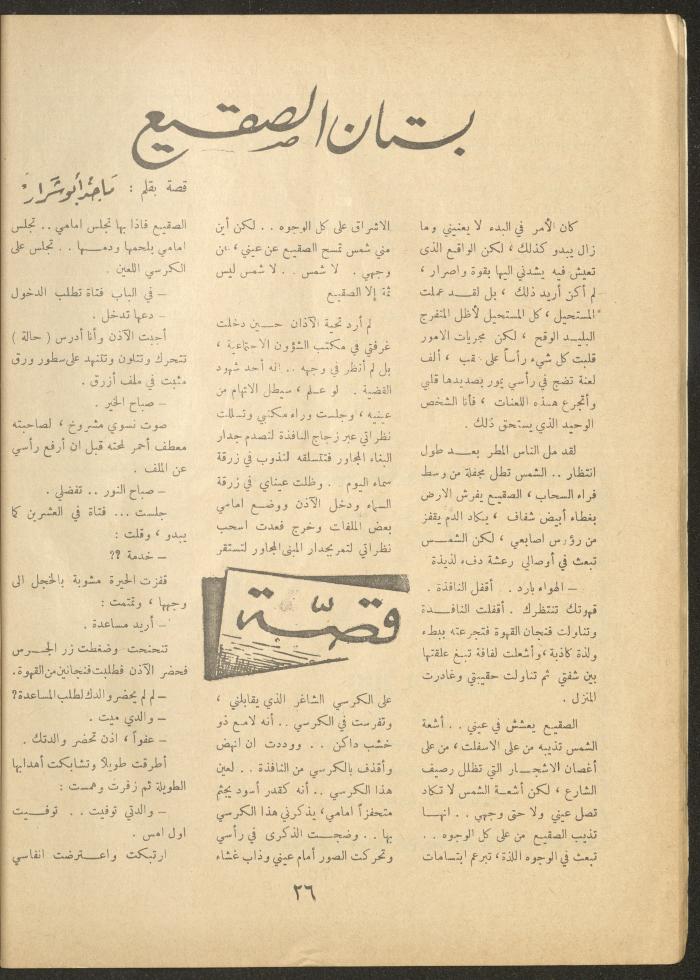 بستان الصقيع
قصة بقلم : ماجد أبو شرار
كان الأمر في البدء لا يعنيني وما
زال يبدو كذلك ، لكن الواقع الذي
تعيش فيه يشدني اليها بقوة واصرار ،
لم أكن أريد ذلك ، بل لقد عملت
المستحيل ، كل المستحيل لأظل المتفرج
البليد الوقح ، لكن مجريات الامور
قلبت كل شيء رأساً على عقب ، ألف
لعنة تضج في رأسي يمور بصديدها قلبي
وأتجرع هذه اللعنات ، فأنا الشخص
الوحيد الذي يستحق ذلك .
لقد مل الناس المطر بعد طول
انتظار .. الشمس تطل مجفلة من وسط
فراء السحاب ، الصقيع يفرش الارض
بغطاء أبيض شفاف ، يكاد الدم يقفز
من رؤوس اصابعي ، لكن الشمس
تبعث في أوصالي رعشة دفء لذيذة
– الهواء بارد . أقفل النافذة .
قهوتك تنتظرك . أقفلت النافذة
وتناولت فنجان القهوة فتجرعته ببطء
ولذة كاذبة ، وأشعلت لفافة تبغ علقتها
بين شفتي ثم تناولت حقيبتي وغادرت
المنزل .
الصقيع يعشش في عيني . . أشعة
الشمس تذيبه من على الاسفلت ، من على
أغصان الاشجار التي تظلل رصيف
الشارع ، لكن أشعة الشمس لا تكاد
تصل عيني ولا حتى وجهي . . انها
تذيب الصقيع من على كل الوجوه . .
تبعث في الوجوه اللذة ، تبرعم ابتسامات
الاشراق على كل الوجوه .. لكن أين
مني شمس تمسح الصقيع عن عيني ، عن
وجهي . لا شمس . . لا شمس ليس
ثمة إلا الصقيع
لم أرد تحية الآذان حين دخلت
غرفتي في مكتب الشؤون الاجتماعية ،
بل لم أنظر في وجهه .. انه أحد شهود
القضية . لو علم ، سيطل الاتهام من
عينيه ، وجلست وراء مكتبي وتسللت
نظراتي عبر زجاج النافذة لتصدم جدار
البناء المجاور فتتسلقه لتذوب في زرقة
سماء اليوم . . وظلت عيناي في زرقة
السماء ودخل الآذن ووضع امامي
بعض الملفات وخرج فعدت اسحب
نظراتي لتمر بجدار المبنى المجاور لتستقر
قصّة
على الكرسي الشاغر الذي يقابلني ،
وتفرست في الكرسي .. أنه لامع ذو
خشب داكن . . ووددت ان انهض
وأقذف بالكرسي من النافذة . . لعين
هذا الكرسي .. أنه كقدر أسود يجثم
متحفزاً امامي ، يذكرني هذا الكرسي
بها . . وضجت الذكرى في رأسي
وتحركت الصور أمام عيني وذاب غشاء
الصقيع فاذا بها تجلس امامي .. تجلس
امامي بلحمها ودمها . . تجلس على
الكرسي اللعين .
– في الباب فتاة تطلب الدخول
– دعها تدخل .
أجبت الآذن وأنا أدرس ( حالة )
تتحرك وتتلون وتتنهد على سطور ورق
مثبت في ملف أزرق .
– صباح الخير .
صوت نسوي مشروخ ، لصاحبته
معطف أحمر لمحته قبل ان أرفع رأسي
عن الملف .
– صباح النور .. تفضلي .
جلست ... فتاة في العشرين كما
يبدو ، وقلت :
– خدمة ??
قفزت الحيرة مشوبة بالخجل الى
وجهها ، وتمتمت :
– أريد مساعدة .
تنحنحت وضغطت زر الجرس
فحضر الآذن فطلبت فنجانين من القهوة.
– لم لم يحضر والدك لطلب المساعدة؟
– والدي ميت .
– عفواً ، اذن تحضر والدتك .
أطرقت طويلاً وتشابكت أهدابها
الطويلة ثم زفرت وهمست :
– والدتي توفيت . . توفيت
اول امس .
ارتبكت واعترضت انفاسي
٢٦